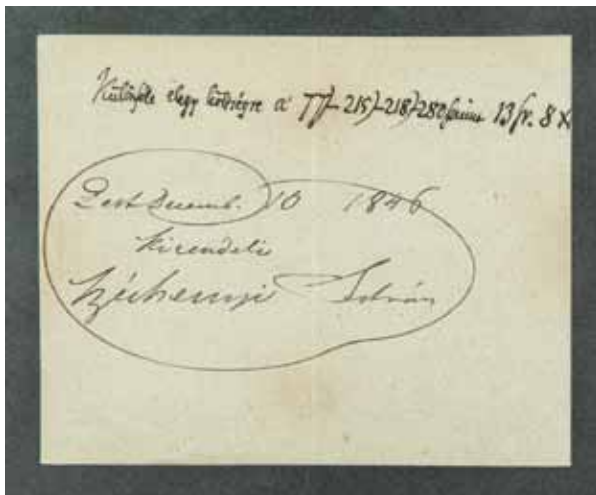 Különféle elegy költségre a' 77)-215)-218)-280 13 fr. 8 x
Pest Decemb. 10 1846
kirendeli
Széchenyi István